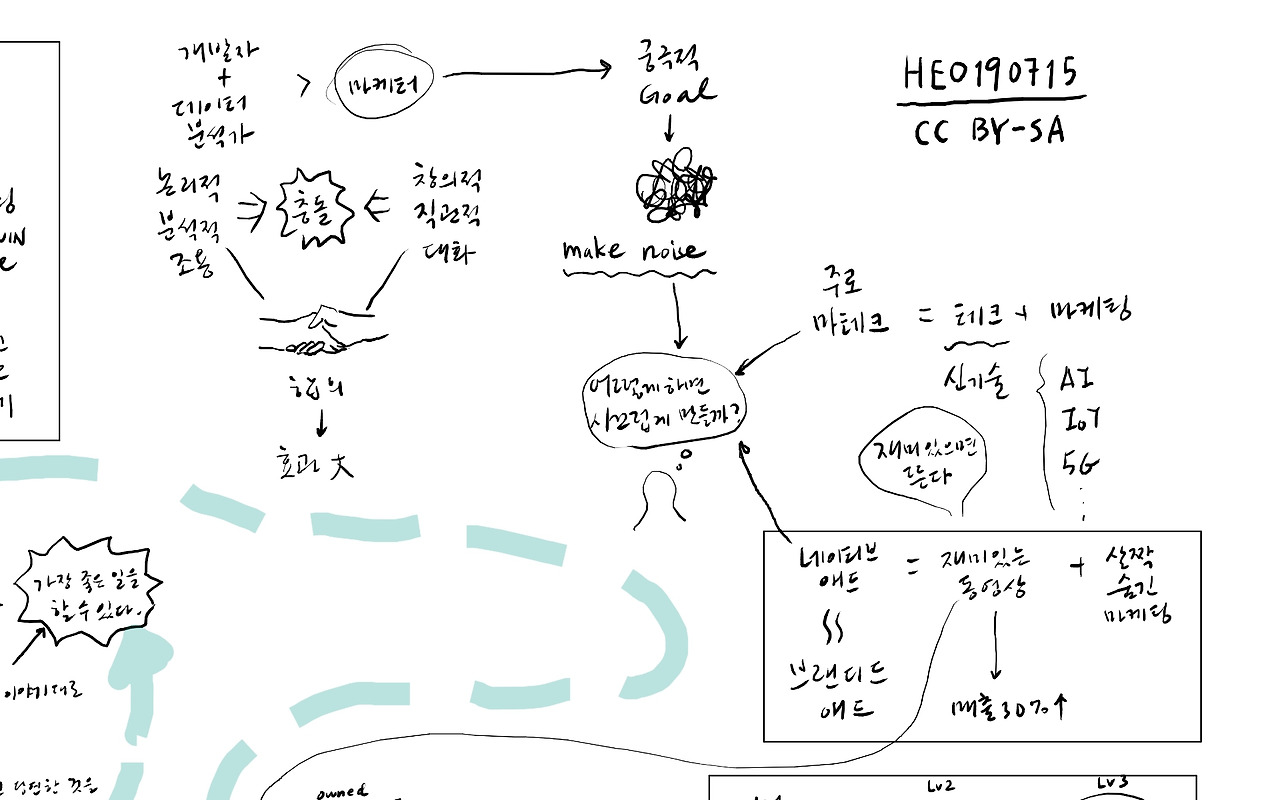 개발자
+
데이터
분석가
>
마케터
궁극적
Goal
HEO190715
CC BY-SA
논리적
분석적
조용
충돌
창의적
직관적
대화
합의
효과 大
make noise
어떻게하면
시끄럽게 만들까?
주로
마테크 = 테크 + 마케팅
신기술
AI
IoT
5G
재미있으면
뜬다
네이티브
애드
=
재미있는
동영상
+
살짝
숨긴
마케팅
브랜디드
애드
매출30%↑
가장 좋은 일을
할 수 있다.
이야기대로
당연한 것을
owned
Lv2
Lv3